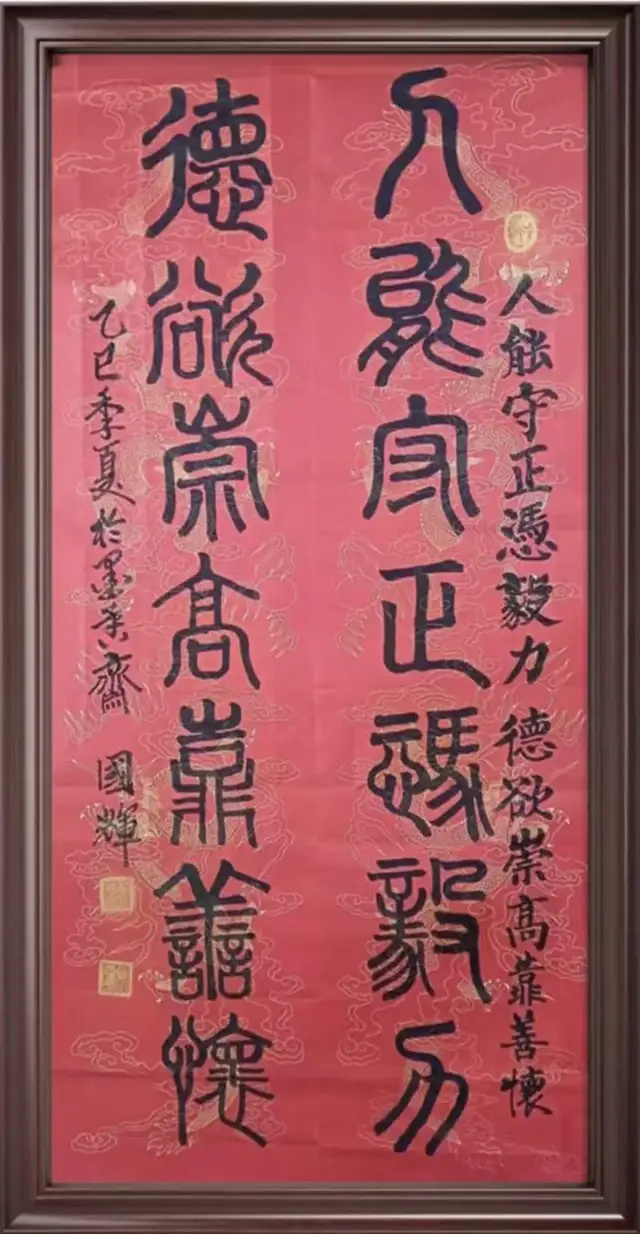 人能守正憑毅力德欲崇高靠善懷
人能守正憑毅力
德欲崇高靠善懷
乙巳季夏於墨香齋國輝